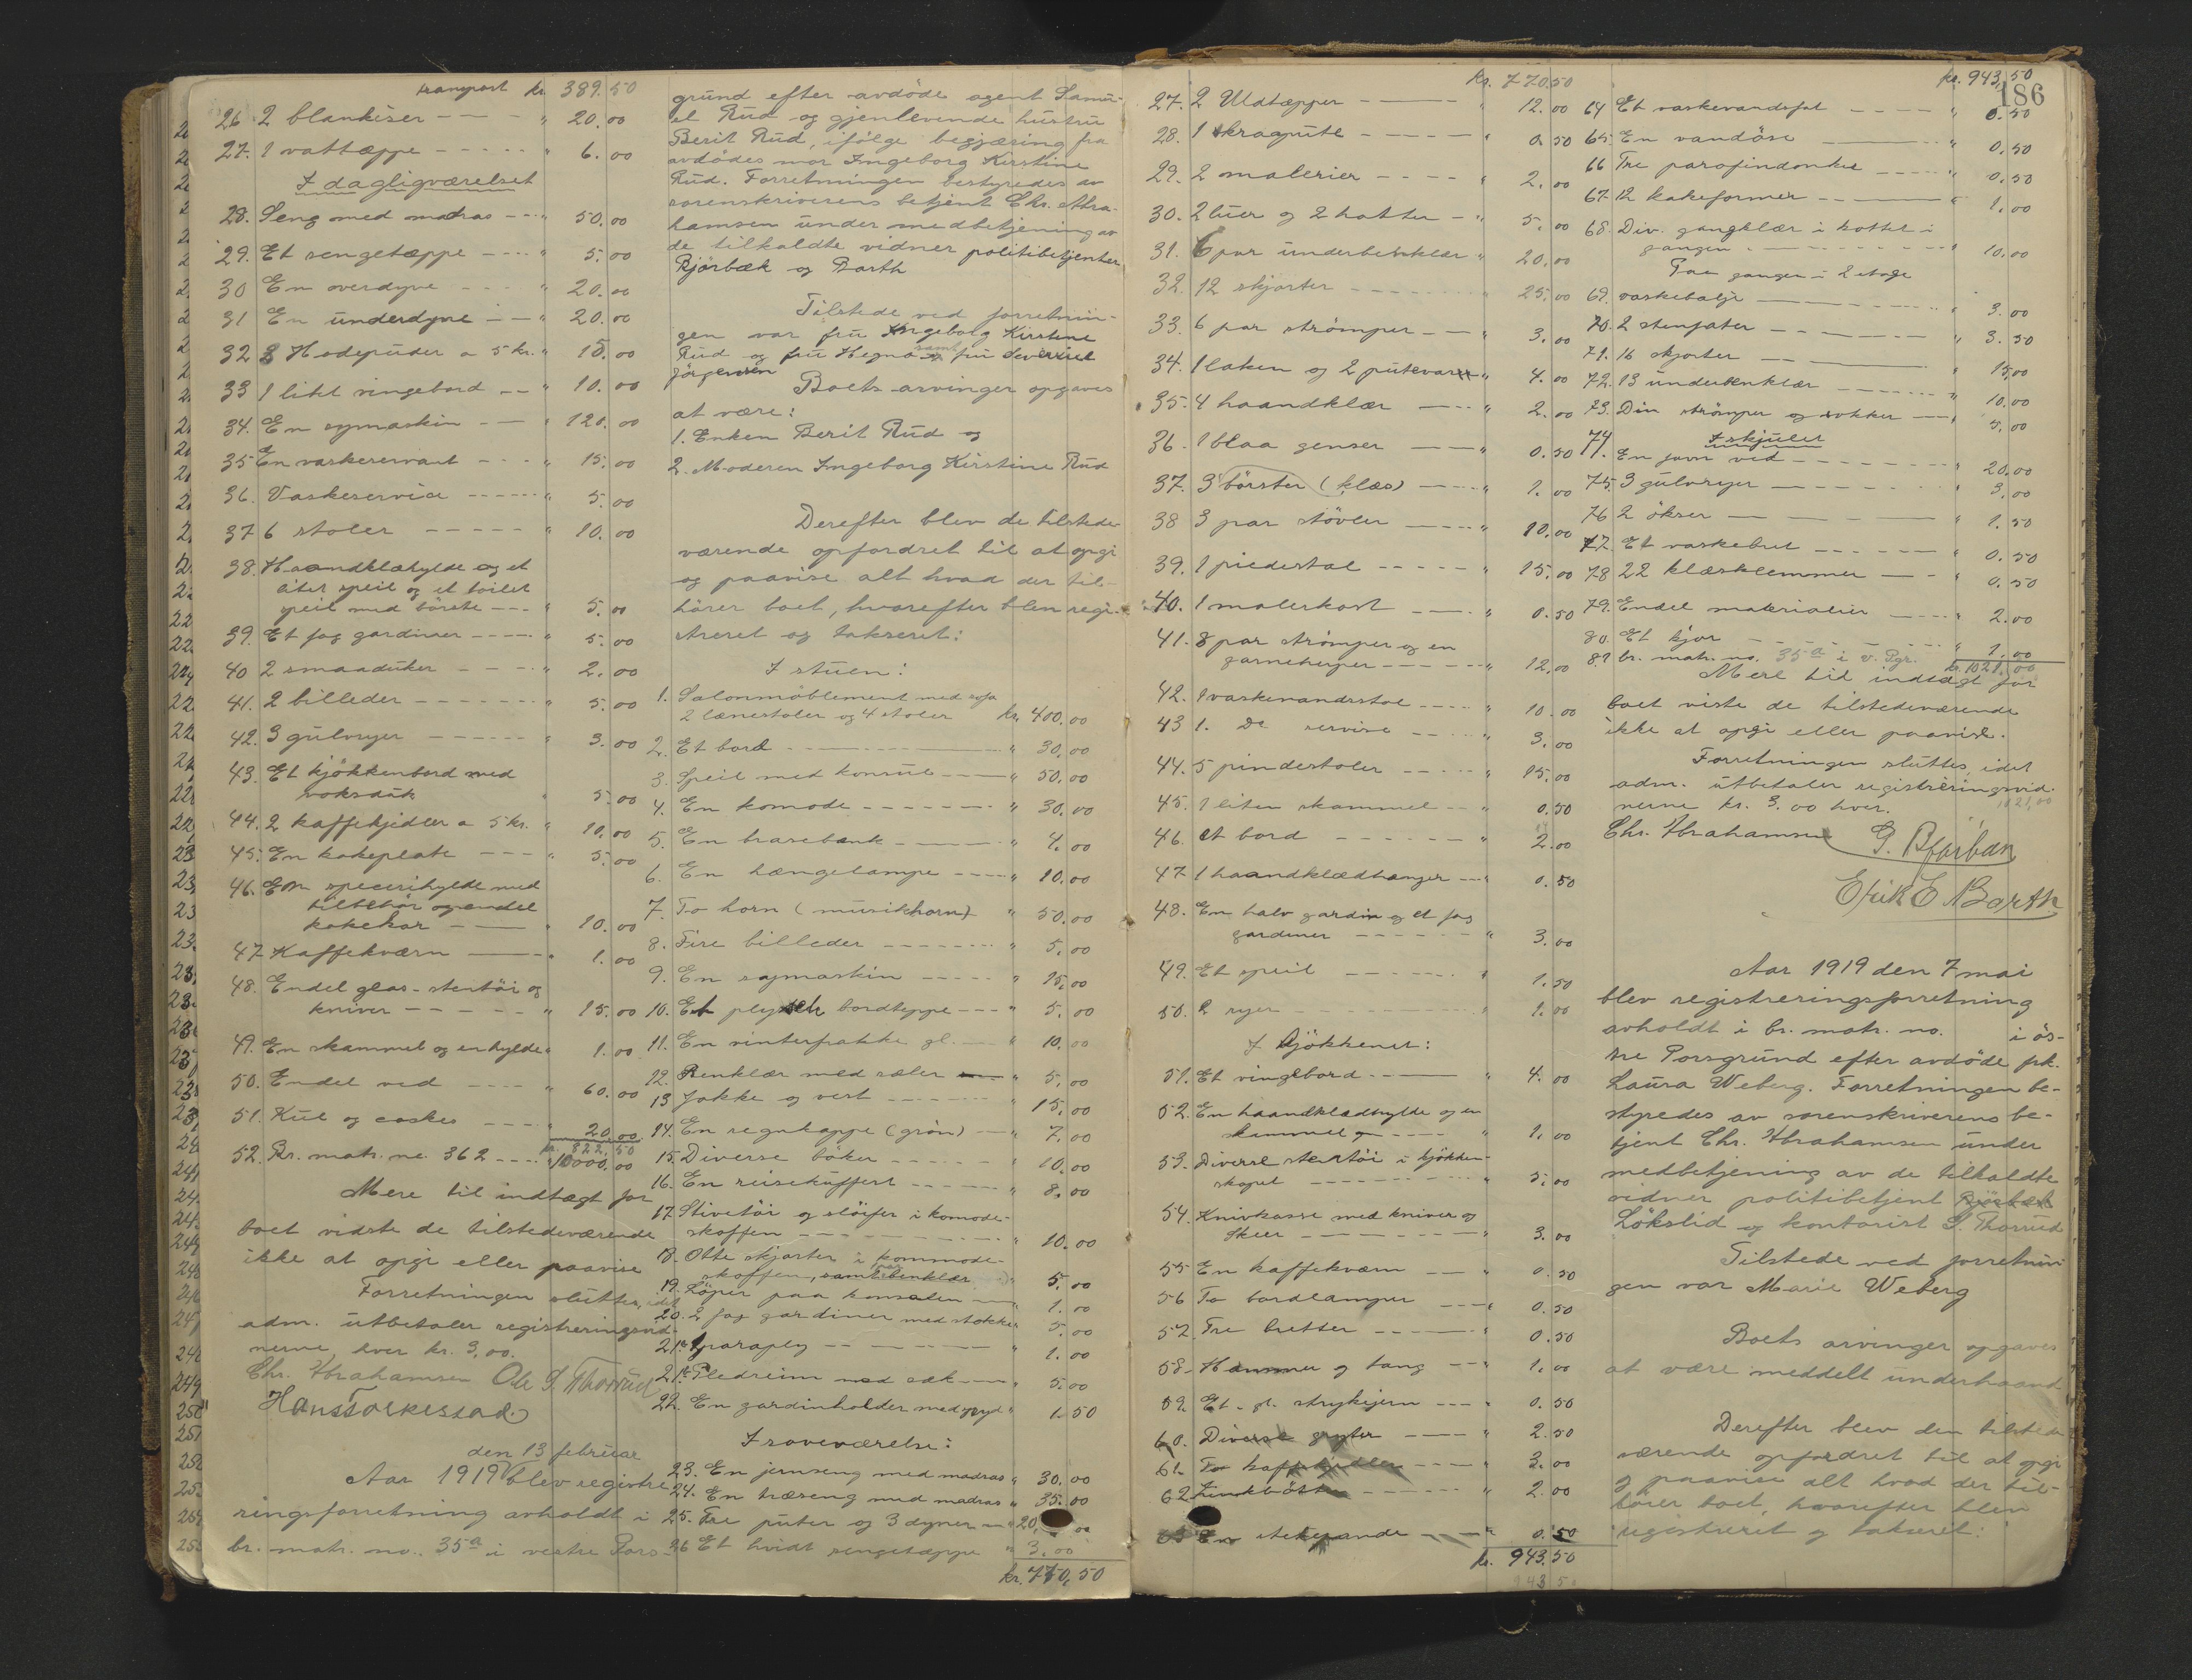 transport kr. 389.50
26 2 blankiser - - - " 20.00
27. 1 vattæppe - - - - - " 6.00
I dagligværelset
28. Seng med madras - - - " 50.00
29. Et sengetæppe - - - - " 5.00
30 En overdyne - - - - " 20.00
31 En underdyne - - - " 20.00
32 3 Hodepuder a 5 kr. " 15.00
33 1 litet vingebord - - " 10.00
34. En symaskin - - " 120.00
35 En vaskeservant - - - " 15.00
36. Vaskeservice - - - - - " 5.00
37 6 stoler - - - - - " 10.00
38. Haandklæhylde og et
litet speil og et toilet
speil med börste - - - " 5.00
39. Et fag gardiner - - - - " 5.00
40 2 smaaduker - - - - " 2.00
41. 2 billeder - - - - - - " 5.00
42. 3 gulvryer - - - - - " 3.00
43. Et kjökkenbord med
voksduk " 5.00
44. 2 kaffekjedler a 5 kr. " 10.00
45. En kokeplate - - - " 5.00
46. En specerihylde med
tilbehör og endel
kokekar - - - " 10.00
47 Kaffekværn - - - " 1.00
48. Endel glas- stentöi og
kniver - - - - - " 15.00
49. En skammel og en hylde " 1.00
50. Endel ved - - - - " 60.00
51. Kul og cokes - - - - " 20.00
kr. 822.50
52. Br. matr. no. 362 - - - - " 10000.00
Mere til indtægt for
boet vidste de tilstedeværende
ikke at opgi eller paavise
Forretningen sluttes, idet
adm. utbetaler registreringsvid-
nerne, hver kr. 3,00.
Chr. Abrahamsen Ole S. Thorrud
Hans Folkestad
den 13 februar
Aar 1919 blev registre-
ringsforretning avholdt i
br. matr. no. 35a i vestre Pors-
grund efter avdöde agent Samu-
el Rud og gjenlevende hustru
Berit Rud, ifölge begjæring fra
avdödes mor Ingeborg Kirstine
Rud. Forretningen bestyredes av
sorenskriverens betjent Chr. Abra-
hamsen under medbetjening av
de tilkaldte vidner politibetjenter
Bjørbæk og Barth
Tilstede ved forretnin-
gen var fru Ingeborg Kirstine
Rud og fru Hegna samt fru Severine
Jörgensen
Boets arvinger opgaves
at være:
1. Enken Berit Rud og
2. Moderen Ingeborg Kirstine Rud
Derefter blev de tilstede-
værende opfordret til at opgi
og paavise alt hvad der til-
hörer boet, hvorefter blev regi-
streret og takseret:
I stuen:
1. Salonmöblement med sofa
2 lænestoler og 4 stoler kr. 400.00
2. Et bord - - - " 30.00
3. Speil med konsul - - - " 50.00
4. En komode - - - - - - " 30.00
5. En brasebænk - - - " 4.00
6. En hængelampe - - - " 10.00
7. To horn (musikhorn) " 50.00
8. Fire billeder - - - - - - " 5.00
9. En symaskin - - - - - " 15.00
10. Et plysch bordteppe - - - " 5.00
11. En vinterfrakke gl. - - - " 10.00
12. Benklær med sæler - - - " 5.00
13 Jakke og vest - - - - - " 15.00
14. En regnkappe (grön) - - " 7.00
15. Diverse böker - - - - - " 10.00
16. En reisekuffert - - - - " 8.00
17. Stivetöi og slöifer i komode-
skoffen - - - - - - " 10.00
18. Otte skjorter i kommode-
skoffen, samt benklær " 5.00
19. Löper paa konsolen - - " 1.00
20. 2 fag gardiner med stokke " 5.00
21. 1 paraply - - - - - " 1.00
21. Pledreim med sæk - - " 5.00
22. En gardinholder med gryd " 1.50
I soveværelse:
23. En jernseng med madras " 30.00
24. En træseng med madras " 35.00
25. Tre puter og 3 dyner - " 20.00
26 Et hvidt sengetæppe " 3.00
kr. 770,50
kr. 770.50
27. 2 Uldtæpper - - - - " 12.00
28. 1 skragpute - - - - - " 0.50
29. 2 malerier - - - - " 2.00
30. 2 luer og 2 hatter - " 5.00
31. 6 par underbenklær " 20.00
32. 12 skjorter - - - - - - - " 25.00
33. 6 par strömper - - " 3.00
34. 1 laken og 2 putevarer " 4.00
35. 4 haandklær - - - " 2.00
36. 1 blaa genser - - - " 0.50
37. 3 börster (klæs) - - - " 1.00
38 3 par stövler - - - - " 10.00
39. 1 piedestal - - - - - " 15.00
40. 1 malerkost - - - - " 0.50
41. 8 par strömper og en
garneherper - - - - - " 12.00
42. 1 vaskevandsstol - - - - " 10.00
43 1. Do servise - - - " 3.00
44. 5 pindestoler - - - - " 15.00
45. 1 liten skammel - - " 0.50
46. et bord - - - - - - " 2.00
47 1 haandklædhænger - - " 0.50
48. En halv gardin og et fag
gardiner - - - - - - " 3.00
49. Et speil - - - - - - " 1.50
50. 2 ryer - - - - - - - " 1.00
I Kjökkenet:
51. Et vingebord - - - " 4.00
52. En haandklædhylde og en
skammel - - - - " 1.00
53. Diverse stentöi i kjökken-
skapet - - - - - - - " 5.00
54. Knivkasse med kniver og
skeer - - - - - - - " 3.00
55 En kaffekværn - - " 0.50
56 To bordlamper - - - " 0.50
57. Tre bretter - - - - - " 0.50
58. Hammer og tang - - " 1.00
59. Et gl. strykejern - - - " 0.50
60. Diverse gryter - - - " 2.50
61. To kaffekjedler - - - " 3.00
62 Zinkbötte - - - - - " 2.00
63 En stekepande - - - " 0.50
kr. 943.50
943 5
kr. 943,50
186
64 Et vaskevandsfat - - - - " 0.50
65. En vandöse - - - " 0.50
66 Tre parafindunke - - - - " 0.50
67. 12 kakeformer - - - " 1.00
68. Div. gangklær i kottet i
gangen - - - - - - " 10.00
Paa gangen i 2 etage
69. vaskebalje - - - - " 3.00
70. 2 stenfater - - - - - " 3.50
71. 16 skjorter - - - - " 15,00
72. 13 underbenklær - - - - - " 10.00
73. Div strömper og sokker - - " 5.00
I skjulet
74. En favn ved - - - - - - " 20.00
75. 3 gulvryer - - - - - " 3.00
76 2 ökser - - - - - " 1.50
77. Et vaskebret - - - - - " 0.50
78 22 klæsklemmer - - - " 0.50
79. Endel materialier - - - " 2.00
80. Et kjar - - - - - - " 1.00
81 br. matr. no. 35a i v. Pgr. kr. 1021.00
Mere til indtægt for
boet viste de tilstedeværende
ikke at opgi eller paavise.
Forretningen sluttes, idet
adm. utbetaler registreringsvid-
nerne kr. 3.00 hver. 1021,00
Chr. Abrahamsen G. Bjørbæk
Erik E. Barth
Aar 1919 den 7 mai
blev registreringsforretning
avholdt i br. matr. no. i ös-
tre Porsgrund efter avdöde frk.
Laura Weberg. Forretningen be-
styredes av sorenskriverens be-
tjent Chr. Abrahamsen under
medbetjening av de tilkaldte
vidner politibetjent Bjørbæk
Lökslid og kontorist S. Thorrud
Tilstede ved forretnin-
gen var Marie Weberg
Boets arvinger opgaves
at være meddelt underhaand
Derefter blev den tilstede-
værende opfordret til at opgi
og paavise alt hvad der til-
hörer boet, hvorefter blev
registreret og takseret: